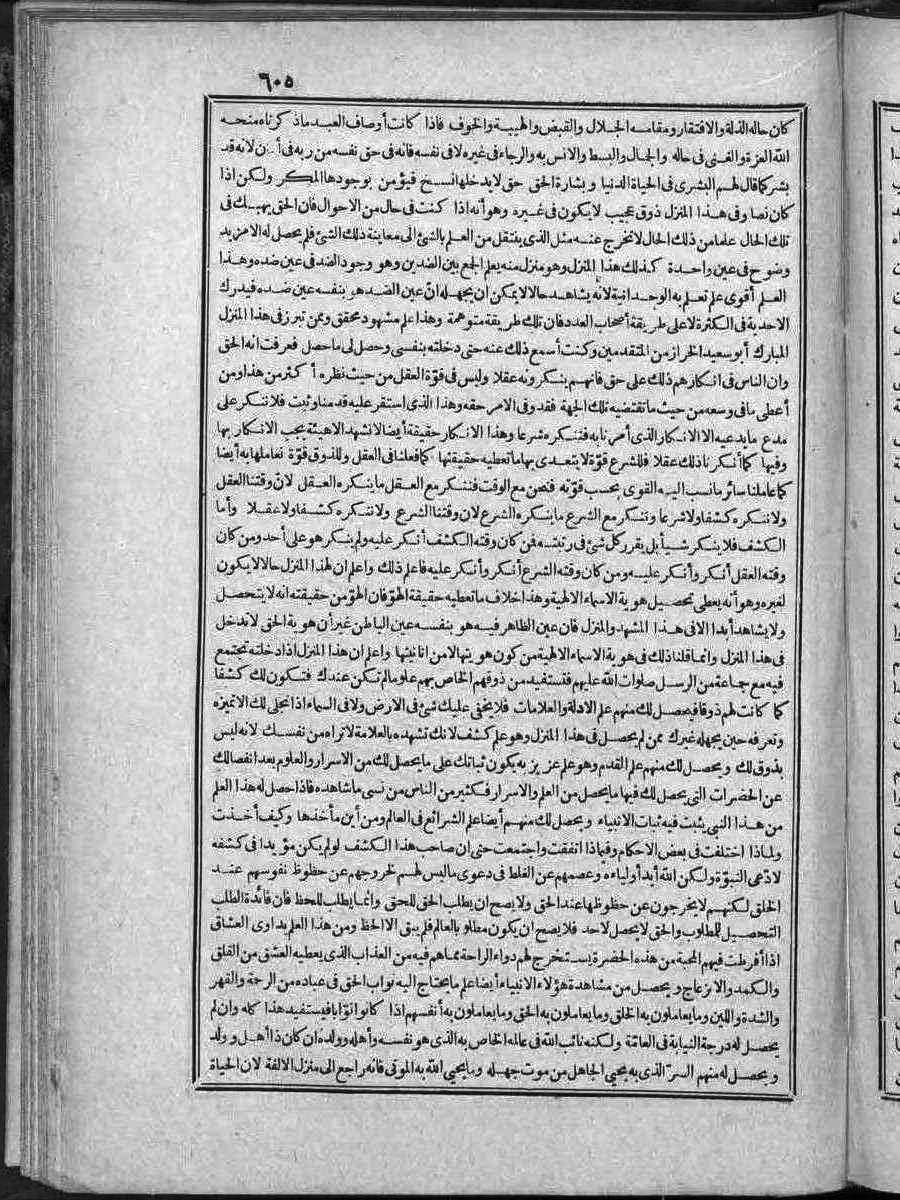 ٦٠٥
كان حاله الذلة والافتقار ومقامه الجلال والقبض والهيبة والخوف فاذا كانت أوصاف العبد ماذكرناه منحه
الله العزة والغنى فى حاله والجمال والبسط والانس به والرجاء فى غيره لا فى نفسه فانه فى حق نفسه من ربه فى أمن لانه قد
بشر كما قال لهم البشرى فى الحياة الدنيا وبشارة الحق حق لا يدخلها نسخ فيؤمن بوجودها المكر ولكن اذا
كان نصا وفى هذا المنزل ذوق عجيب لا يكون فى غيره وهو أنه اذا كنت فى حال من الاحوال فان الحق يهبك فى
تلك الحال علما من ذلك الحال لا تخرج عنه مثل الذى ينتقل من العلم بالشئ الى معاينة ذلك الشئ فلم يحصل له الا مزيد
وضوح فى عين واحدة كذلك هذا المنزل وهو منزل منه يعلم الجمع بين الضدين وهو وجود الضد فى عين ضده وهذا
العلم أقوى علم تعلم به الوحدانية لانه يشاهد حالا لا يمكن أن يجهله انّ عين الضد هو بنفسه عين ضده فيدرك
الاحدية فى الكثرة لا على طريقة أصحاب العدد فان تلك طريقة متوهمة وهذا علم مشهود محقق وممن تبرز فى هذا المنزل
المبارك أبو سعيد الخراز من المتقدمين وكنت أسمع ذلك عنه حتى دخلته بنفسى وحصل لى ما حصل فعرفت انه الحق
وان الناس فى انكارهم ذلك على حق فانهم ينكرونه عقلا وليس فى قوّة العقل من حيث نظره أكثر من هذا ومن
أعطى ما فى وسعه من حيث ما تقتضيه تلك الجهة فقد وفى الامر حقه وهذا الذى استقر عليه قدمنا وثبت فلا ننكر على
مدع ما يدعيه الا الانكار الذى أمرنا به فننكره شرعا وهذا الانكار حقيقة أيضا لا نشهد الا هيئة يجب الانكار بها
وفيها كما أنكرنا ذلك عقلا فللشرع قوّة لا يتعدى بها ما تعطيه حقيقتها كما فعلنا فى العقل وللذوق قوّة نعاملها به أيضا
كما عاملنا سائر ما نسب اليه القوى بحسب قوّته فنحن مع الوقت فننكر مع العقل ما ينكره العقل لانّ وقتنا العقل
ولا ننكره كشفا ولا شرعا وننكر مع الشرع ما ينكره الشرع لان وقتنا الشرع ولا ننكره كشفا ولا عقلا وأما
الكشف فلا ينكر شيأ بل يقرر كل شئ فى رتبته فمن كان وقته الكشف أنكر عليه ولم ينكر هو على أحد ومن كان
وقته العقل أنكر وأنكر عليه ومن كان وقته الشرع أنكر وأنكر عليه فاعلم ذلك واعلم ان لهذا المنزل حالا لا يكون
لغيره وهو أنه يعطى تحصيل هوية الاسماء الالهية وهذا خلاف ما تعطيه حقيقة الهوّ فان الهوّ من حقيقته انه لا يتحصل
ولا يشاهد أبدا الا فى هذا المشهد والمنزل فان عين الظاهر فيه هو بنفسه عين الباطن غير أن هوية الحق لا تدخل
فى هذا المنزل وانما قلنا ذلك فى هوية الاسماء الالهية من كون هويتها لا من انانيتها واعلم ان هذا المنزل اذا دخلته تجتمع
فيه مع جماعة من الرسل صلوات الله عليهم فتستفيد من ذوقهم الخاص بهم علوما لم تكن عندك فتكون لك كشفا
كما كانت لهم ذوقا فيحصل لك منهم علم الادلة والعلامات فلا يخفى عليك شئ فى الارض ولا فى السماء اذا تجلى لك الا تميزه
وتعرفه حين يجهله غيرك ممن لم يحصل فى هذا المنزل وهو علم كشف لانك تشهده بالعلامة لا تراه من نفسك لانه ليس
بذوق لك ويحصل لك منهم علم القدم وهو علم عزيز به يكون ثباتك على ما يحصل لك من الاسرار والعلوم بعد انفصالك
عن الحضرات التى يحصل لك فيها ما يحصل من العلم والاسرار فكثير من الناس من نسى ما شاهده فاذا حصل له هذا العلم
من هذا النبى يثبت فيه ثبات الانبياء ويحصل لك منهم أيضا علم الشرائع فى العالم ومن أين مأخذها وكيف أخذت
ولماذا اختلفت فى بعض الاحكام وفيماذا اتفقت واجتمعت حتى ان صاحب هذا الكشف لو لم يكن مؤيدا فى كشفه
لادّعى النبوّة ولكن الله أيد أولياءه وعصمهم عن الغلط فى دعوى ما ليس لهم لخروجهم عن حظوظ نفوسهم عند
الخلق لكنهم لا يخرجون عن حظوظها عند الحق ولا يصح ان يطلب الحق للحق وانما يطلب للحظ فان فائدة الطلب
التحصيل للمطلوب والحق لا يحصل لاحد فلا يصح ان يكون مطلوبا لعالم فلم يبق الا الحظ ومن هذا العلم يداوى العشاق
اذا أفرطت فيهم المحبة من هذه الحضرة يستخرج لهم دواء الراحة مما هم فيه من العذاب الذى يعطيه العشق من القلق
والكمد والانزعاج ويحصل من مشاهدة هؤلاء الانبياء أيضا علم ما يحتاج اليه نواب الحق فى عباده من الرحمة والقهر
والشدة واللين وما يعاملون به الخلق وما يعاملون به الحق وما يعاملون به أنفسهم اذا كانوا نوّابا فيستفيد هذا كله وان لم
يحصل له درجة النيابة فى العامّة ولكنه نائب الله فى عالمه الخاص به الذى هو نفسه وأهله وولده ان كان ذا أهل وولد
ويحصل له منهم السرّ الذى به يحيى الجاهل من موت جهله وما يحيى الله به الموتى فانه راجع الى منزل الالفة لان الحياة